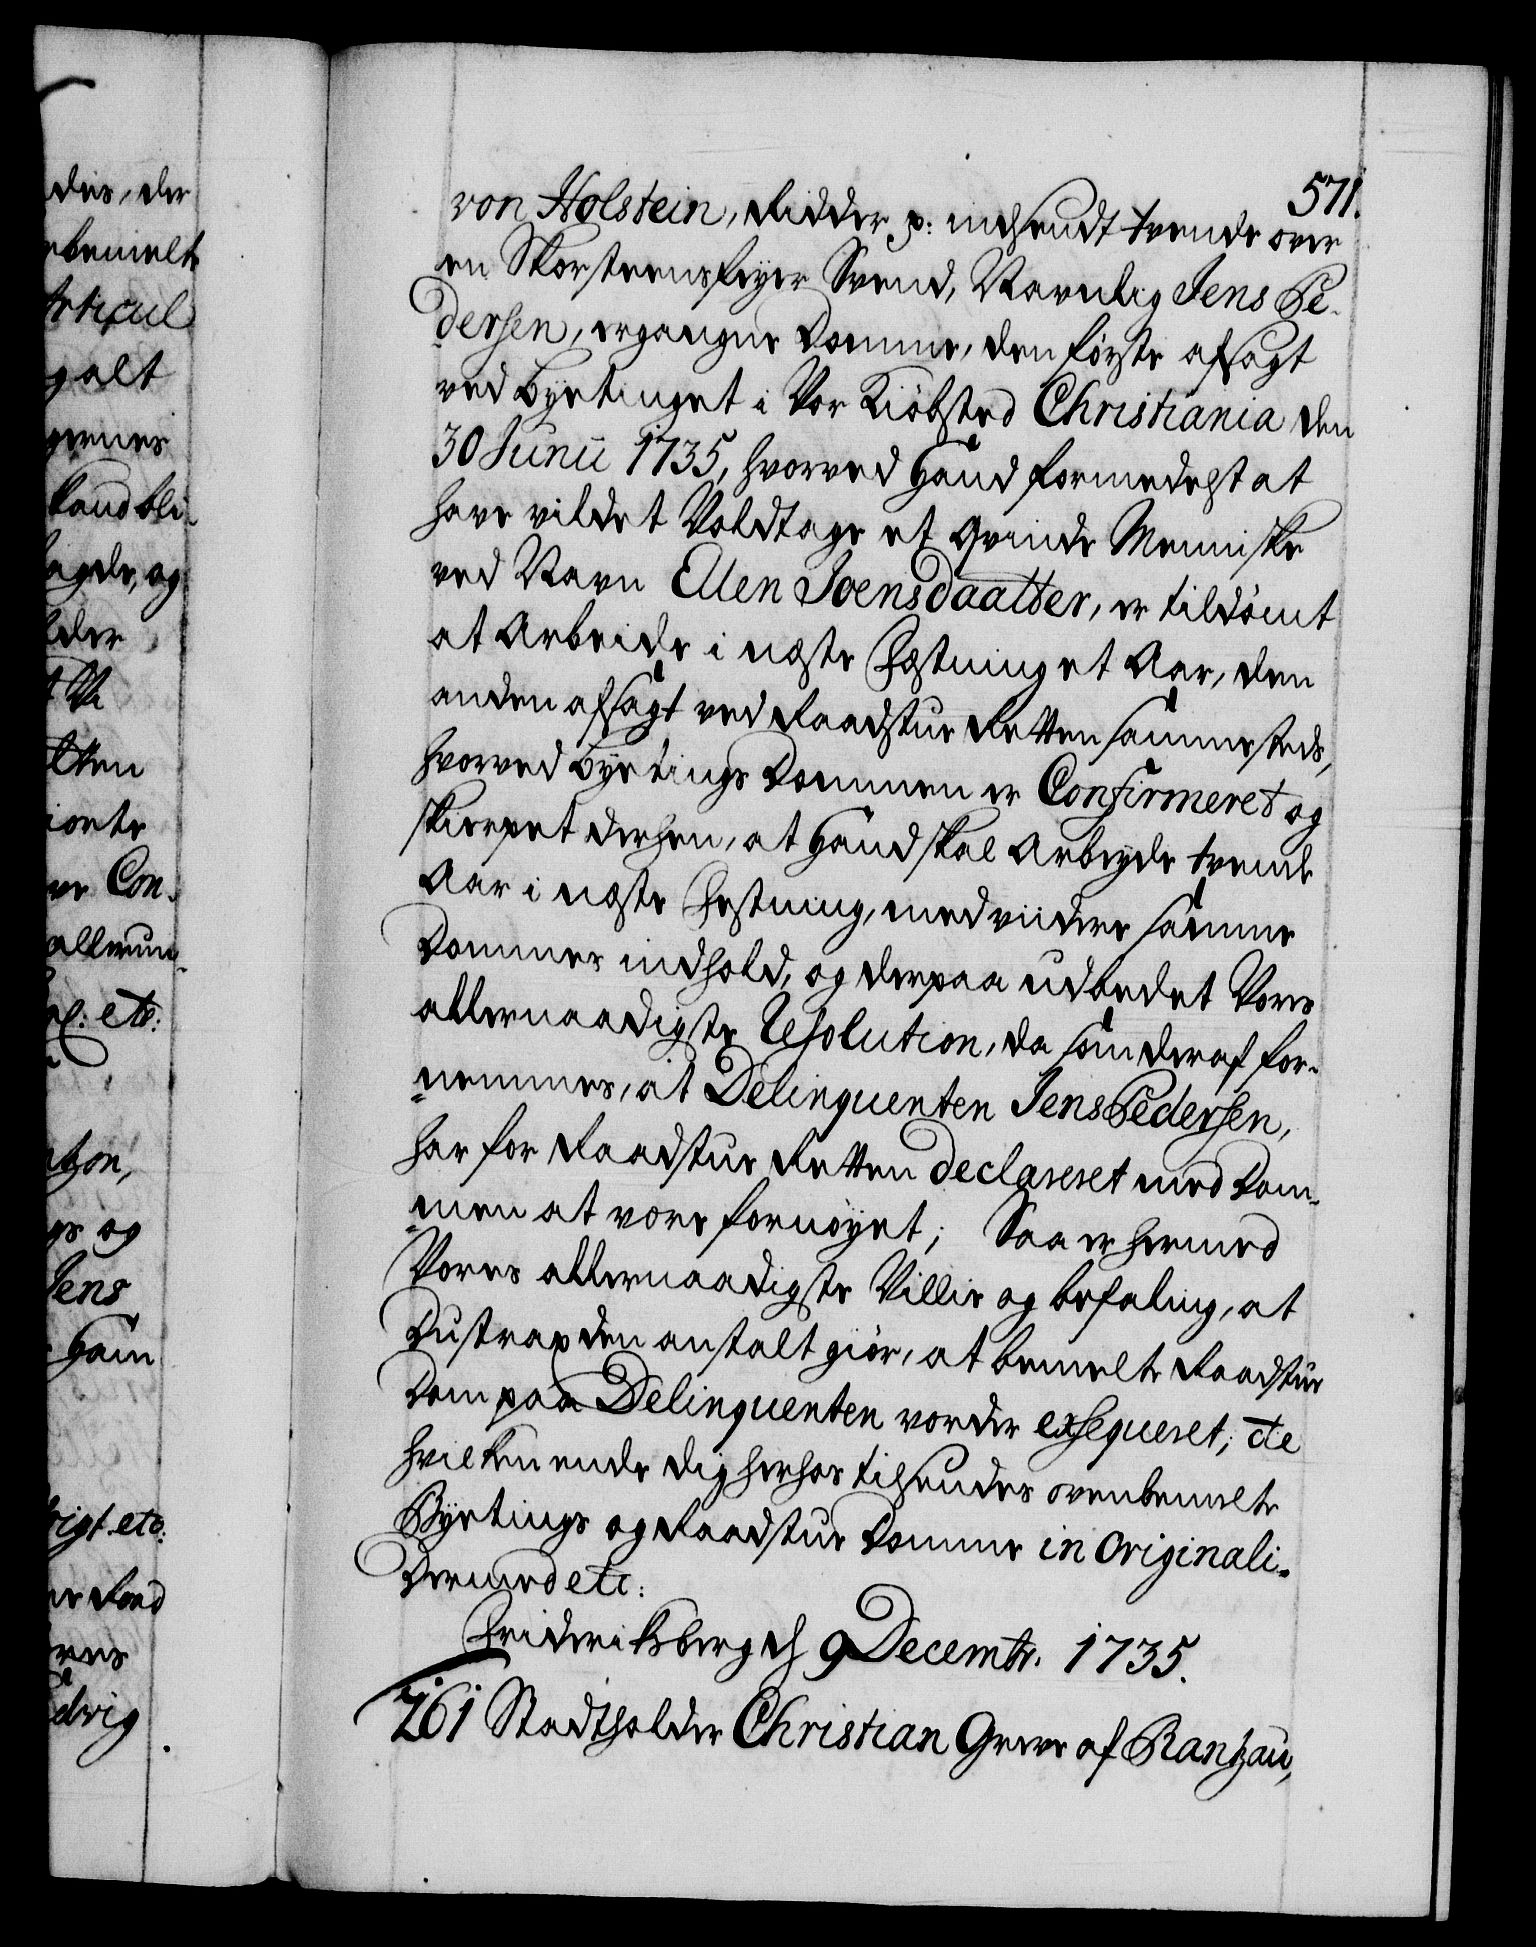 571.
von Holstein, Ridder p: indsendt tvende over
en Skorsteensfeyer Svend, Navnlig Jens Pe-
dersen, ergangne Domme, den første afsagt
ved Byetinget i Vor Kiøbsted Christiania den
30 Junii 1735, hvorved hand formedelst at
have vildet Voldtage et Qvinde Menniske
ved Navn Ellen Joensdaatter, er tildømt
at Arbeide i neste Fæstning et Aar, den
anden afsagt ved Raadstue Retten sammesteds,
hvorved Byetings Dommen er Confirmeret og
skierpet derhen, at hand skal Arbeyde tvende
Aar i neste Festning, med viidere samme
Dommes indhold, og derpaa udbedet Vores
allernaadigste Resolution, da som deraf for-
nemmes, at Delinquenten Jens Pedersen,
har for Raadstue Retten declareret med Dom-
men at være fornøyet; Saa er hermed
Vores allernaadigste Villie og befaling, at
Du strax den anstalt giør, at bemelte Raadstue
Dom paa Delinquenten vorder exseqveret; til
hvilken ende dig herhos tilsendes ovenbemelte
Byetings og Raadstue Domme in originali.
Dermed etc:
Frideriksberg d 9 Decembr. 1735.
261 Stadtholder Christian Greve af Rantzau,
des, der
bemelte
Articul
galt
gernes
land bli-
agde, og
lder
t Vi
tten
iorte
ve Con-
allerun-
l: etc:
tzon,
gs og
Jens
ham
rigt etc:
ne Raad
eres
edvig